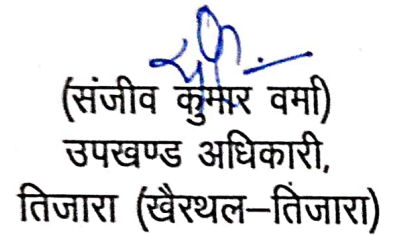 (संजीव कुमार वर्मा)
उपखण्ड अधिकारी,
तिजारा (खैरथल–तिजारा)